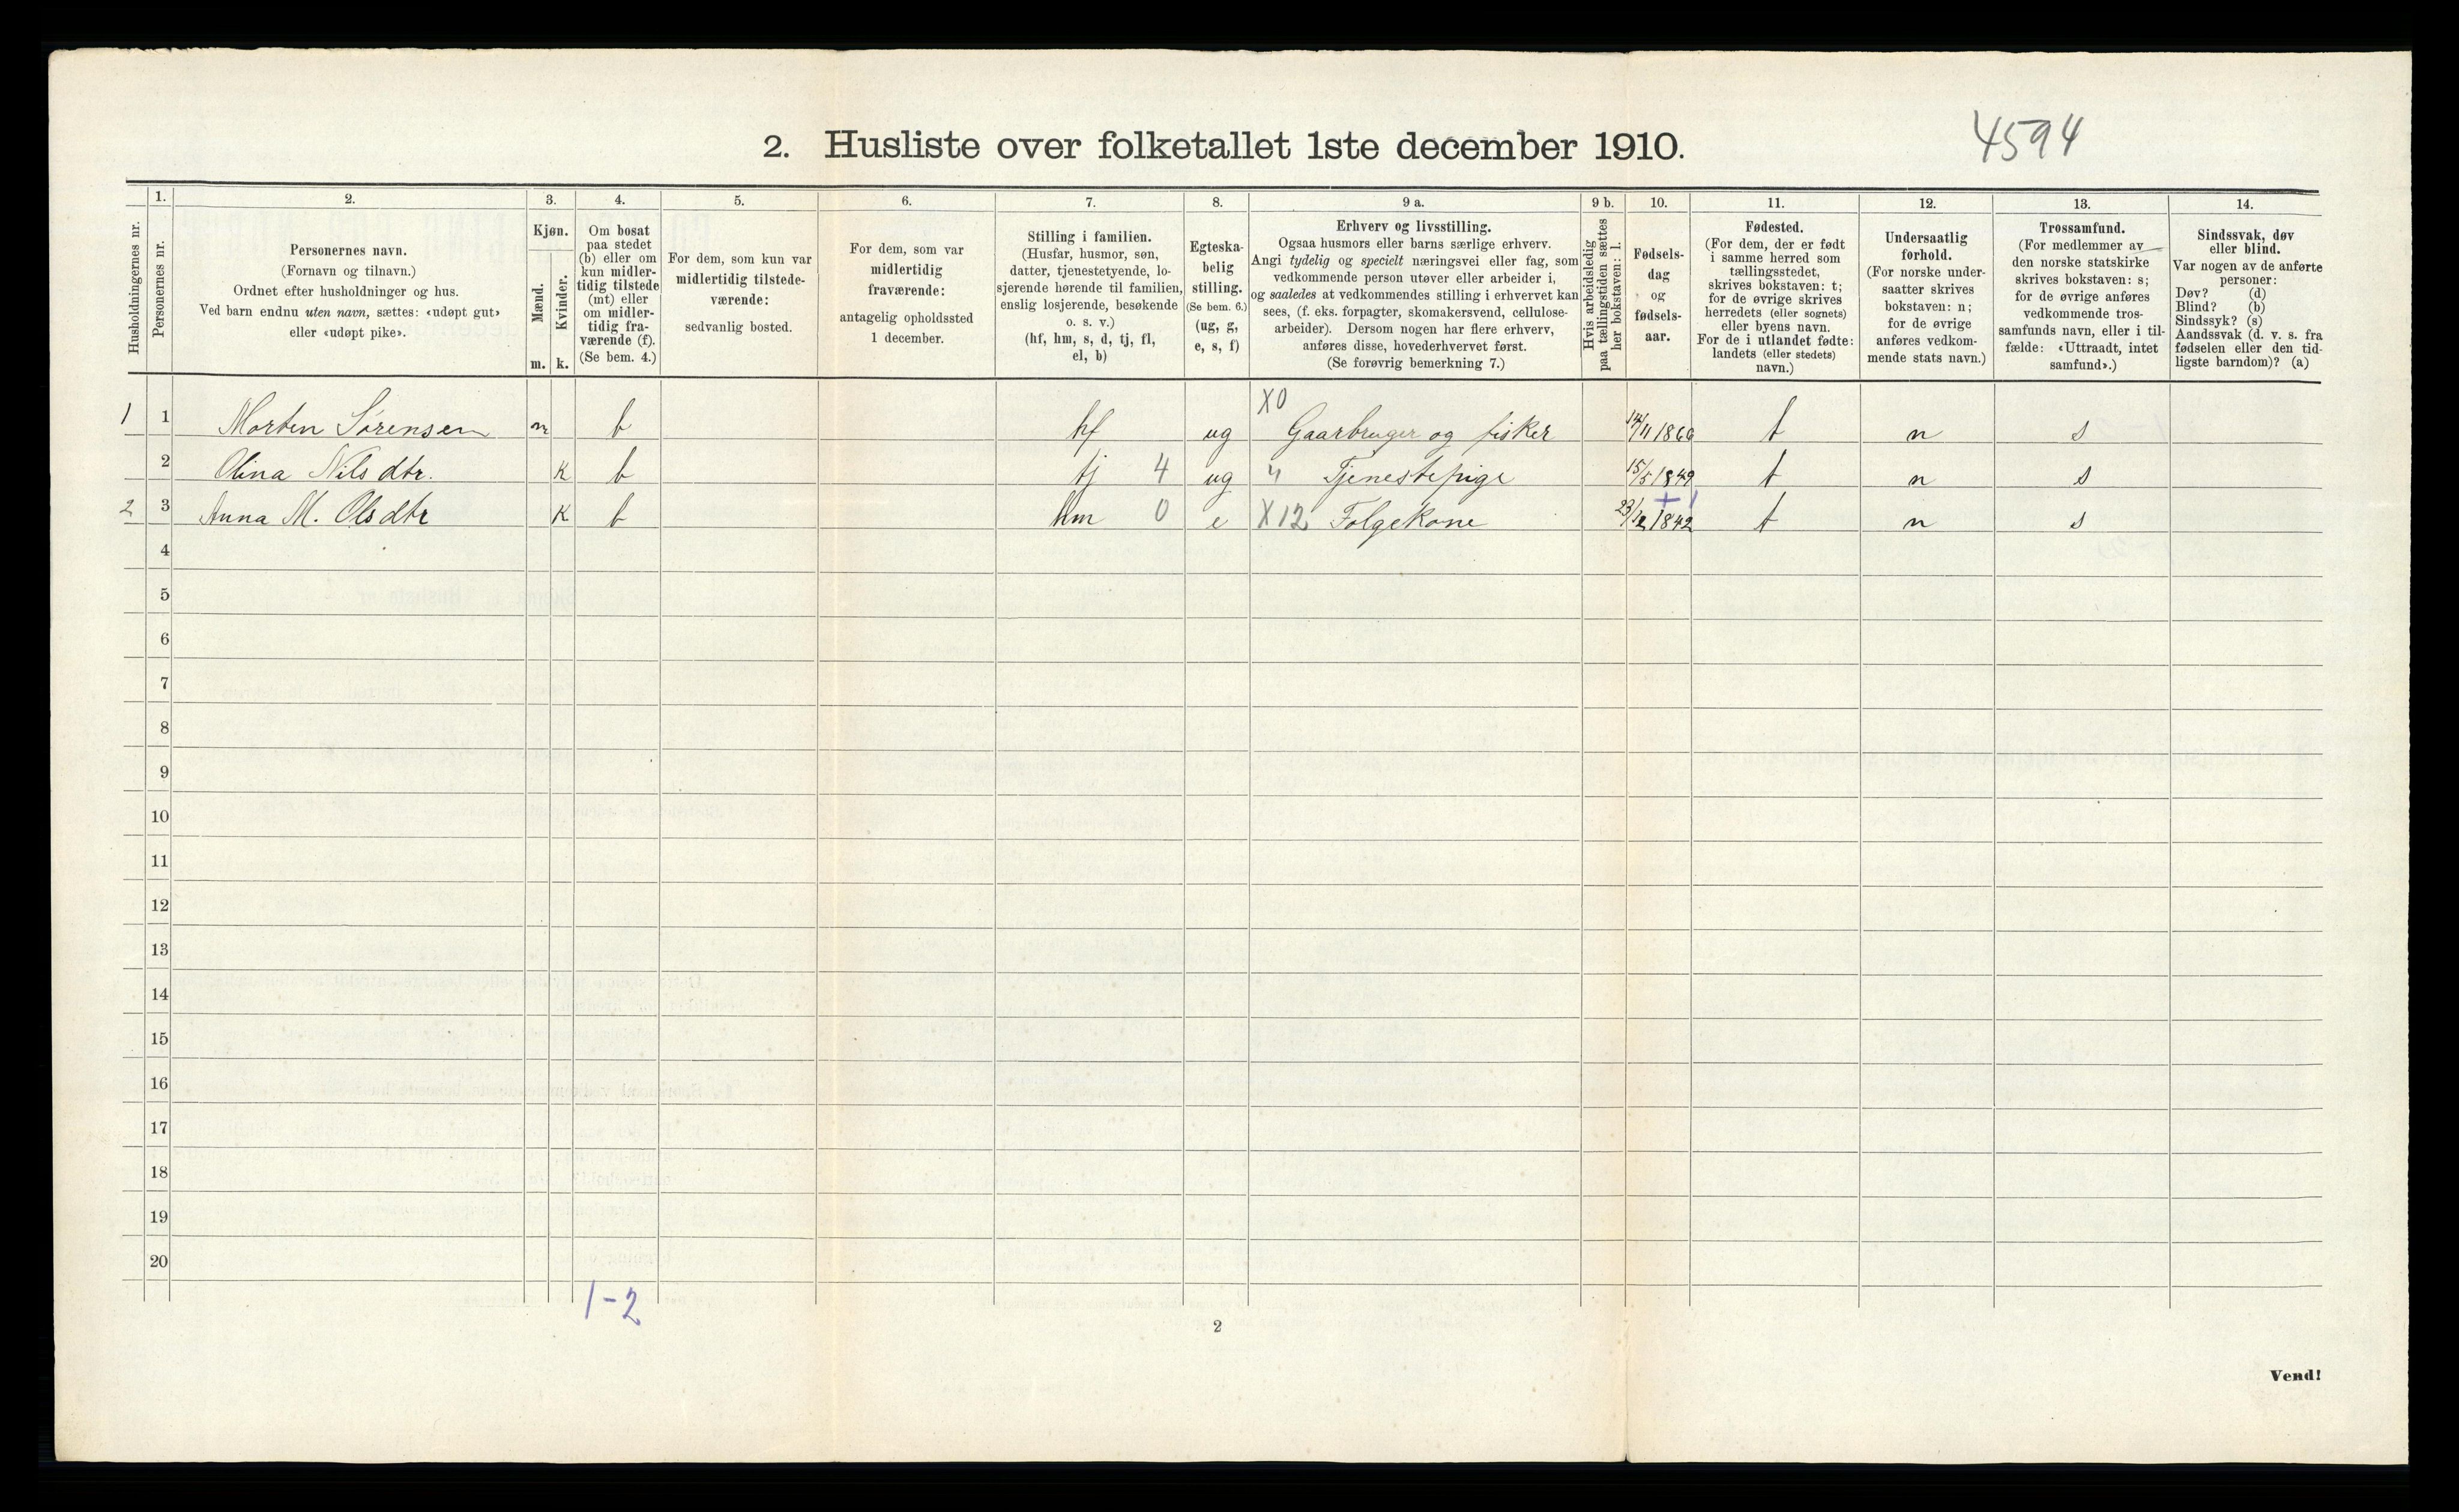 4594
2. Husliste over folketallet 1ste december 1910.
Husholdningernes nr.
1.
Personernes nr.
2.
Personernes navn.
(Fornavn og tilnavn.)
Ordnet efter husholdninger og hus.
Ved barn endnu uten navn, sættes: «udøpt gut»
eller «udøpt pike».
3.
Kjøn.
Mænd.
Kvinder.
m. k.
4.
Om bosat
paa stedet
(b) eller om
kun midler-
tidig tilstede
(mt) eller
om midler-
tidig fra-
værende (f).
(Se bem. 4.)
5.
For dem, som kun var
midlertidig tilstede-
værende:
sedvanlig bosted.
6.
For dem, som var
midlertidig
fraværende:
antagelig opholdssted
1 december.
7.
Stilling i familien.
(Husfar, husmor, søn,
datter, tjenestetyende, lo-
sjerende hørende til familien,
enslig losjerende, besøkende
o. s. v.)
(hf, hm, s, d, tj, fl,
el, b)
8.
Egteska-
belig
stilling.
(Se bem. 6.)
(ug, g,
e, s, f)
9 a.
Erhverv og livsstilling.
Ogsaa husmors eller barns særlige erhverv.
Angi tydelig og specielt næringsvei eller fag, som
vedkommende person utøver eller arbeider i,
og saaledes at vedkommendes stilling i erhvervet kan
sees, (f. eks. forpagter, skomakersvend, cellulose-
arbeider). Dersom nogen har flere erhverv,
anføres disse, hovederhvervet først.
(Se forøvrig bemerkning 7.)
9 b.
Hvis arbeidsledig
paa tællingstiden sættes
her bokstaven: l.
10.
Fødsels-
dag
og
fødsels-
aar.
11.
Fødested.
(For dem, der er født
i samme herred som
tællingsstedet,
skrives bokstaven: t;
for de øvrige skrives
herredets (eller sognets)
eller byens navn.
For de i utlandet fødte:
landets (eller stedets)
navn.)
12.
Undersaatlig
forhold.
(For norske under-
saatter skrives
bokstaven: n;
for de øvrige
anføres vedkom-
mende stats navn.)
13.
Trossamfund.
(For medlemmer av
den norske statskirke
skrives bokstaven: s;
for de øvrige anføres
vedkommende tros-
samfunds navn, eller i til-
fælde: «Uttraadt, intet
samfund».)
14.
Sindssvak, døv
eller blind.
Var nogen av de anførte
personer:
Døv? (d)
Blind? (b)
Sindssyk? (s)
Aandssvak (d. v. s. fra
fødselen eller den tid-
ligste barndom)? (a)
1 1 Morten Sørensen m b hf ug X0 Gaarbruger og fisker 14/11 1866 t n s
2 Olina Nilsdtr. k b tj 4 ug " Tjenestepige 15/5 1849 t n s
2 3 Anna M. Olsdtr k b hm 0 e X12 Følgekone 23/12 1842 t n s
4
5
6
7
8
9
10
11
12
13
14
15
16
17
18
19
20
1-2
2
Vend!